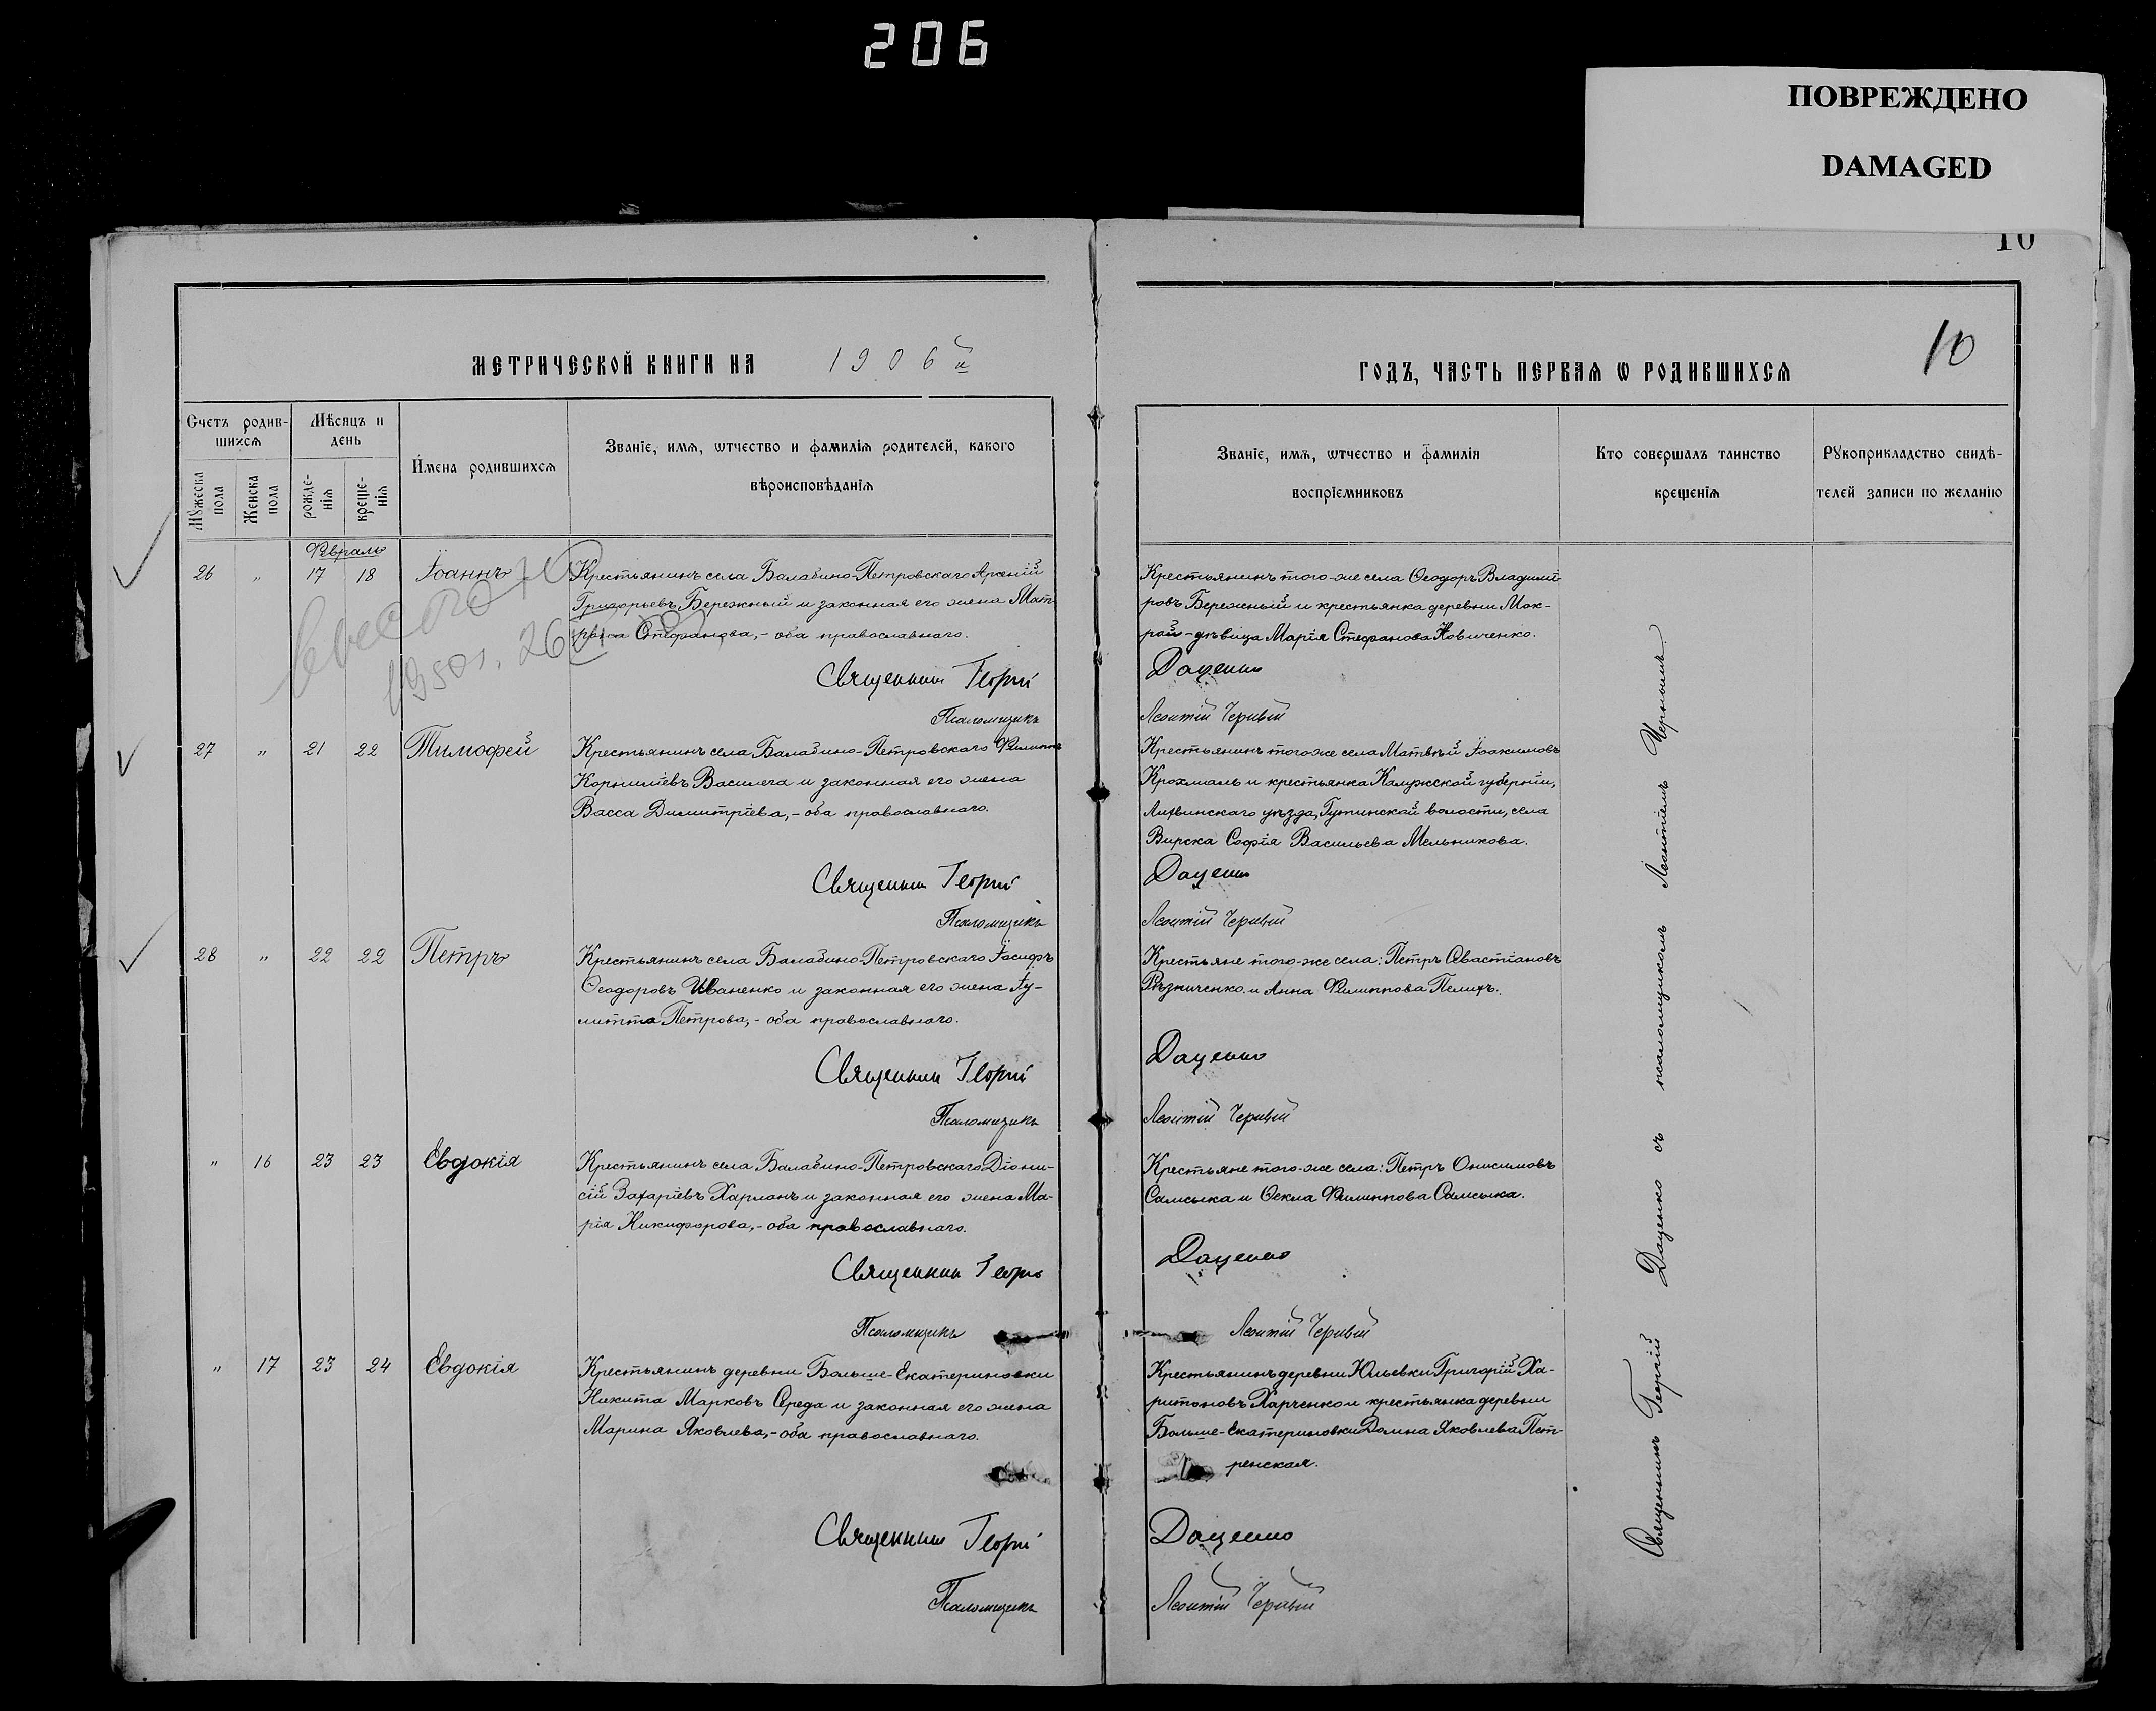 206
ПОВРЕЖДЕНО
DAMAGED
10
10
МЕТРИЧЕСКОЙ КНИГИ НА 1906й
ГОДЪ, ЧАСТЬ ПЕРВАЯ Ѡ РОДИВШИХСЯ
Счетъ родив-
шихся
Мѣсяцъ и
день
Имена родившихся
Званіе, имя, ѡтчество и фамилія родителей, какого
вѣроисповѣданія
Мужеска
пола
Женска
пола
рожде-
нія
креще-
нія
Званіе, имя, ѡтчество и фамилія
воспріемниковъ
Кто совершалъ таинство
крещенія
Рукоприкладство свидѣ-
телей записи по желанію
Февраль
26 " 17 18 Іоаннъ
Крестьянинъ села Балабино-Петровскаго Арсеній
Григорьевъ Бережный и законная его жена Мат-
рона Стефанова,- оба православнаго.
Священник Георгій
Псаломщикъ
Крестьянинъ того-же села Ѳеодоръ Владимі-
ровъ Бережный и крестьянка деревни Мок-
рой-дѣвица Марія Стефанова Новиченко.
Даценко
Леонтій Черный
1950г. 26
27 " 21 22 Тимофей
Крестьянинъ села Балабино-Петровскаго Филиппъ
Корниліевъ Василега и законная его жена
Васса Димитріева,- оба православнаго.
Священник Георгій
Псаломщикъ
Крестьянинъ того же села Матвѣй Іоакимовъ
Крохмаль и крестьянка Калужской губерніи,
Лихвинскаго уѣзда, Гутинской волости, села
Вирска Софія Васильева Мельникова.
Даценко
Леонтій Черный
28 " 22 22 Петръ
Крестьянинъ села Балабино-Петровскаго Іосифъ
Ѳеодоровъ Иваненко и законная его жена Іу-
литта Петрова,- оба православнаго.
Священник Георгій
Псаломщикъ
Крестьяне того-же села: Петръ Севастіановъ
Рѣзниченко и Анна Филиппова Пелихъ.
Даценко
Леонтій Черный
" 16 23 23 Евдокія
Крестьянинъ села Балабино-Петровскаго Діони-
сій Захаріевъ Харланъ и законная его жена Ма-
рія Никифорова,- оба православнаго.
Священник Георгій
Псаломщикъ
Крестьяне того-же села: Петръ Онисимовъ
Самсыка и Ѳекла Филиппова Самсыка.
Даценко
Леонтій Черный
" 17 23 24 Евдокія
Крестьянинъ деревни Больше-Екатериновки
Никита Марковъ Середа и законная его жена
Марина Яковлева,- оба православнаго.
Священник Георгій
Псаломщикъ
Крестьянинъ деревни Юльевки Григорій Ха-
ритоновъ Харченко и крестьянка деревни
Больше-Екатериновки Домна Яковлева Пет-
ренская.
Даценко
Леонтій Черный
Священникъ Георгій Даценко съ псаломщикомъ Леонтіемъ Чернымъ.